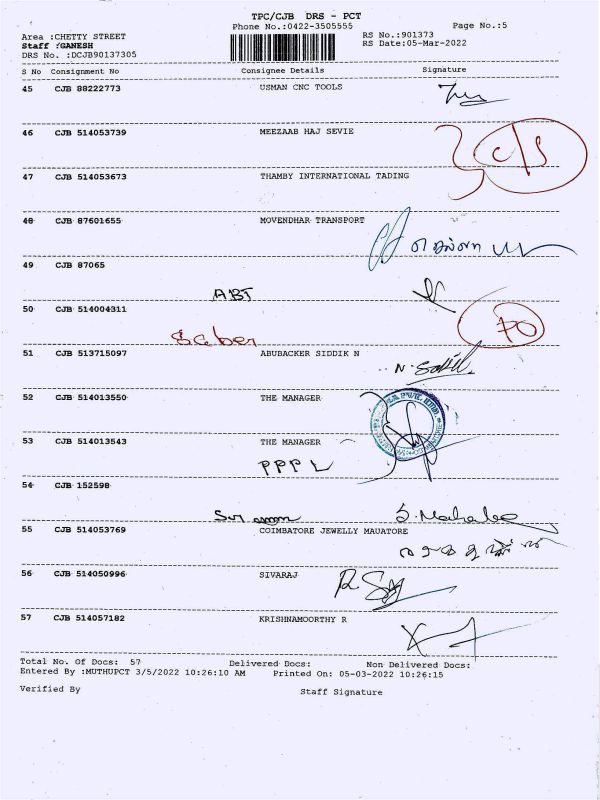 TPC/CJB DRS - PCT
Phone No.:0422-3505555
Page No.:5
Area :CHETTY STREET
RS No.:901373
Staff :GANESH
RS Date:05-Mar-2022
DRS No. :DCJB90137305
S No Consignment No Consignee Details Signature
45 CJB 88222773 USMAN CNC TOOLS
46 CJB 514053739 MEEZAAB HAJ SEVIE
C/S
47 CJB 514053673 THAMBY INTERNATIONAL TADING
48 CJB 87601655 MOVENDHAR TRANSPORT
49 CJB 87065
ABT
50 CJB 514004311
Saber
51 CJB 513715097 ABUBACKER SIDDIK N
52 CJB 514013550 THE MANAGER
53 CJB 514013543 THE MANAGER
PPPL
54 CJB 152598
S. Mahalee
55 CJB 514053769 COIMBATORE JEWELLY MAUATORE
56 CJB 514050996 SIVARAJ
57 CJB 514057182 KRISHNAMOORTHY R
Total No. Of Docs: 57 Delivered Docs: Non Delivered Docs:
Entered By :MUTHUPCT 3/5/2022 10:26:10 AM Printed On: 05-03-2022 10:26:15
Verified By Staff Signature